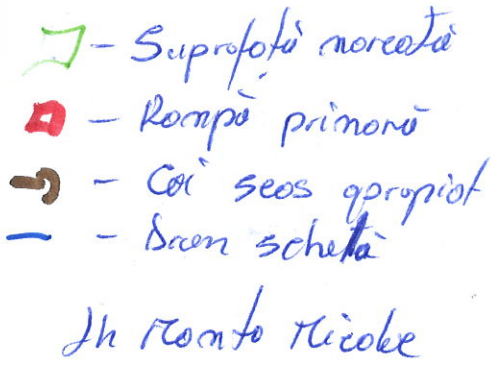 - Suprafață marcată
- Rampă primară
- Căi seos apropiat
- Dren schelă
Jh Manta Nicolae